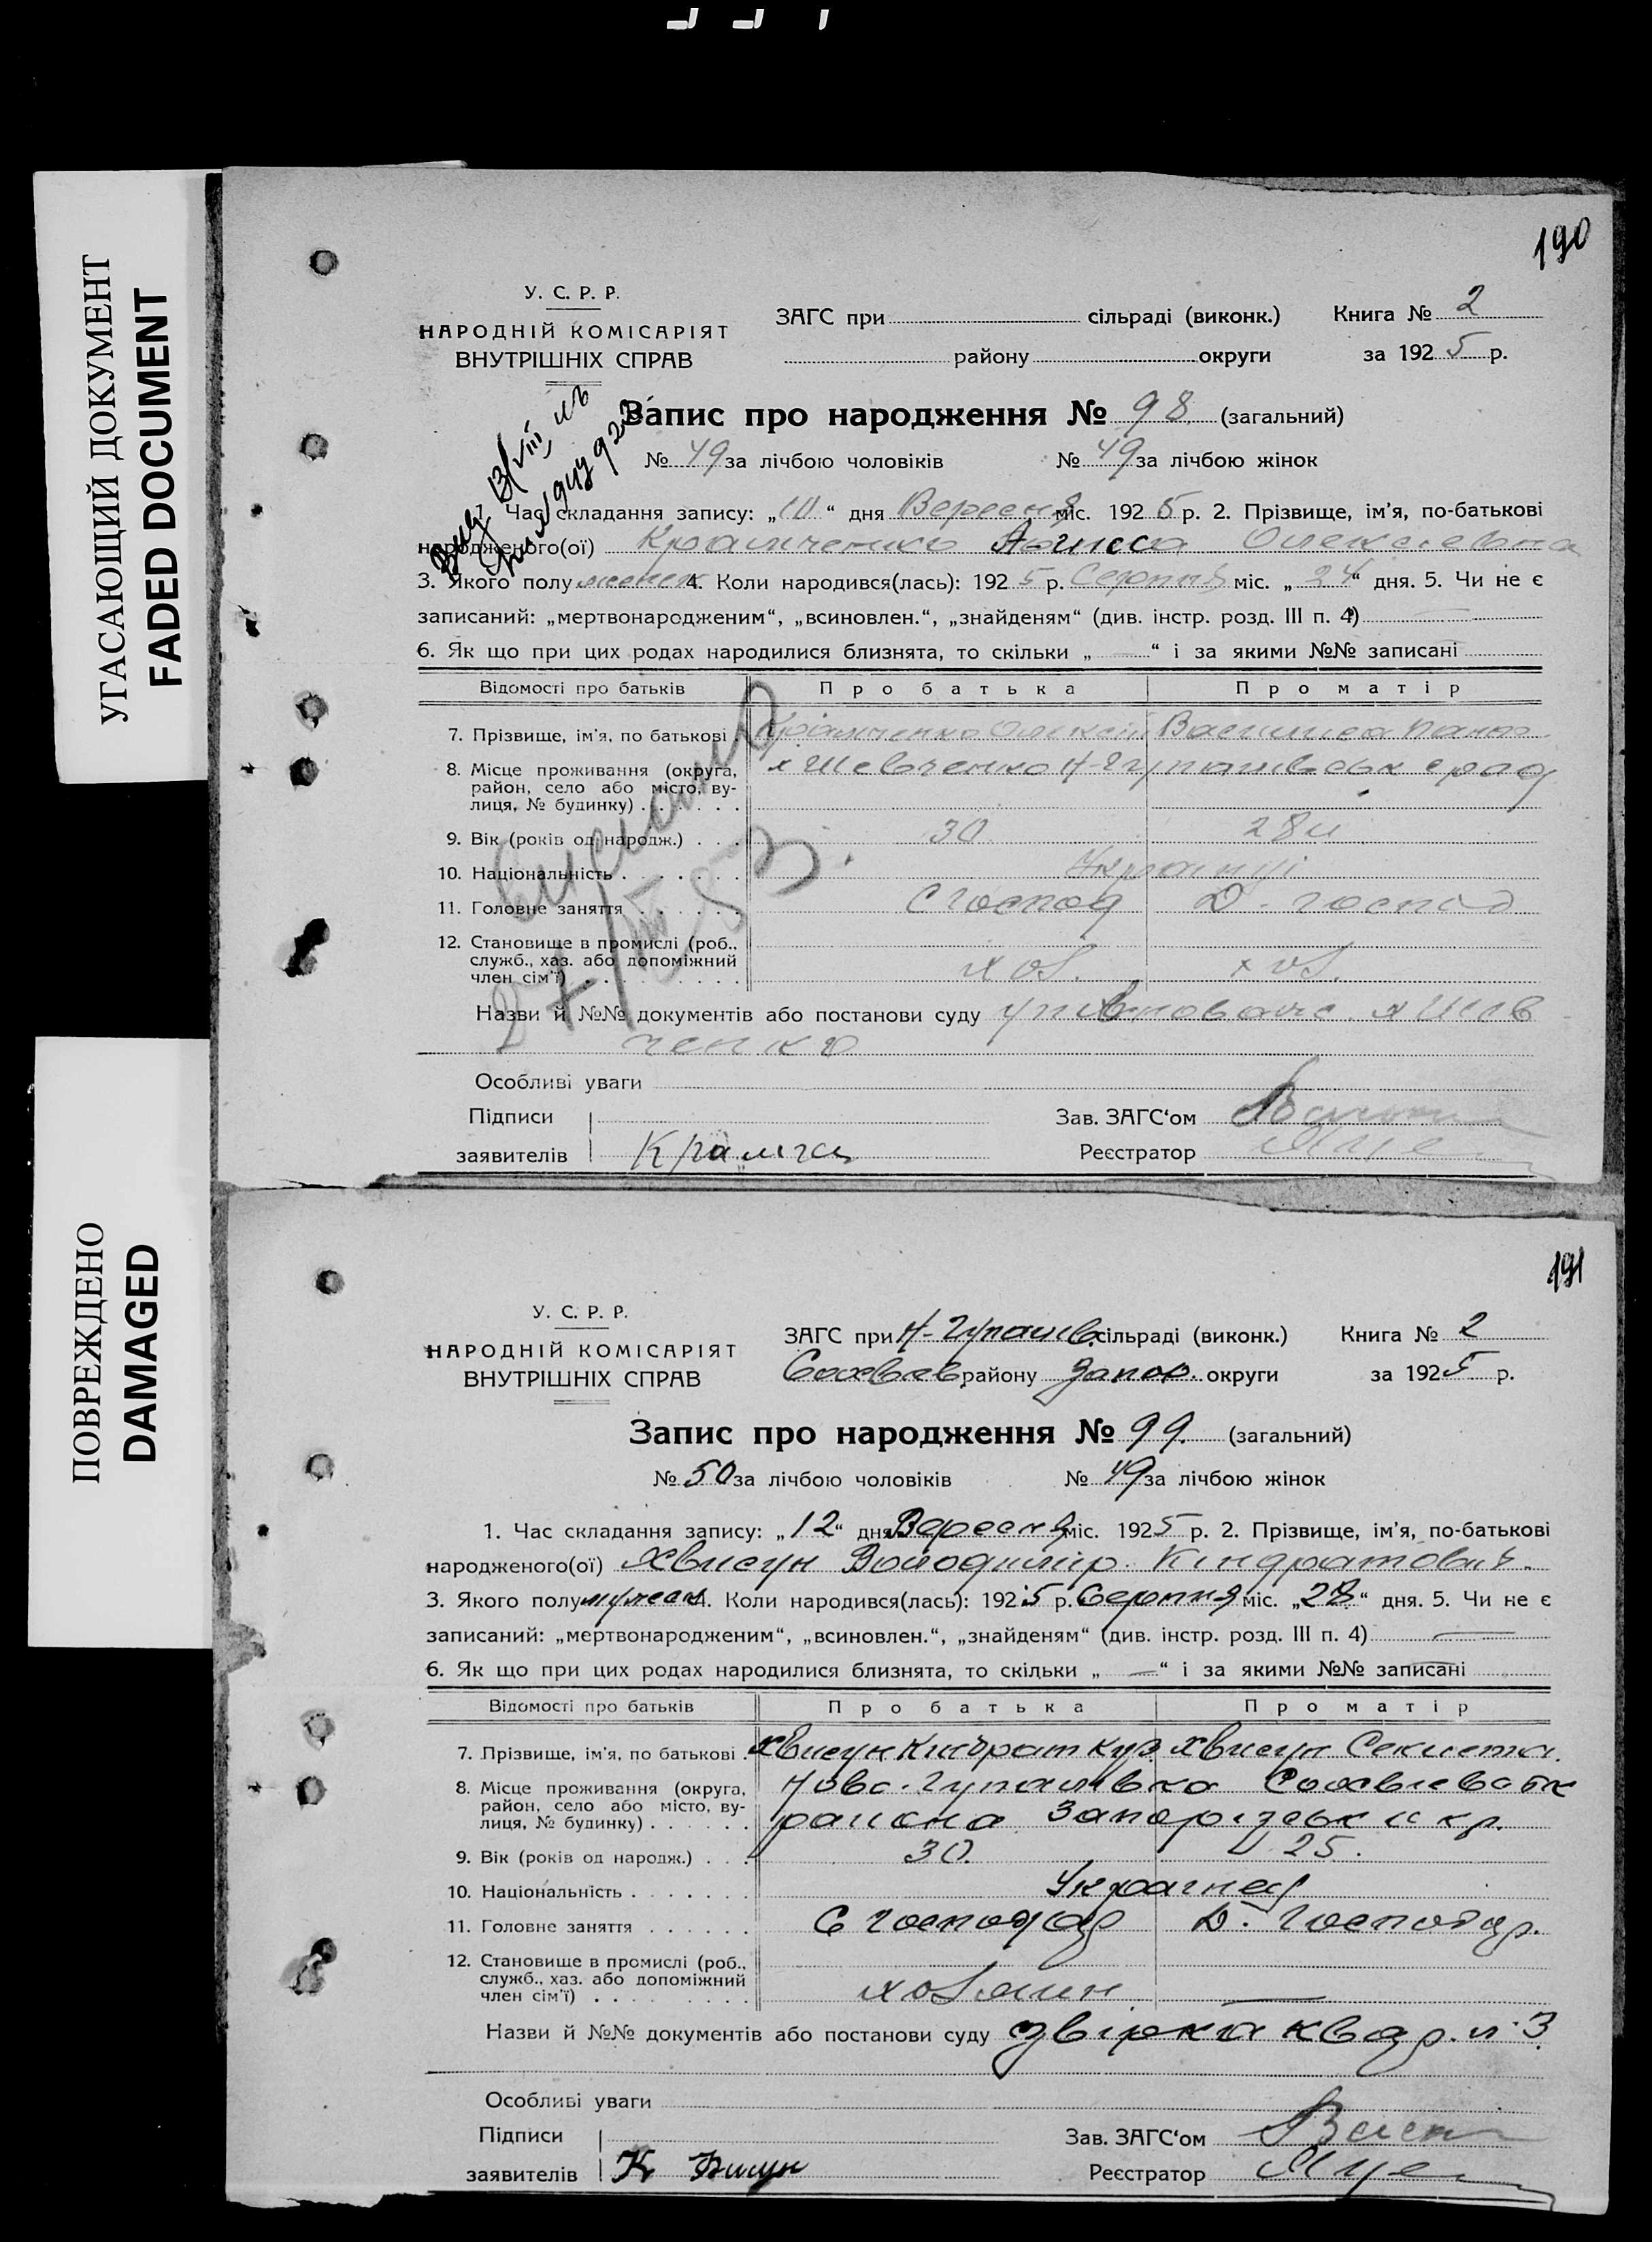 УГАСАЮЩИЙ ДОКУМЕНТ
FADED DOCUMENT
ПОВРЕЖДЕНО
DAMAGED
190
У. С. Р. Р.
НАРОДНІЙ КОМІСАРІЯТ
ВНУТРІШНІХ СПРАВ
ЗАГС при сільраді (виконк.)
району округи
Книга № 2
за 1925 р.
Запис про народження № 98 (загальний)
№ 49 за лічбою чоловіків № 49 за лічбою жінок
1. Час складання запису: „10“ дня Вересня міс. 1925 р. 2. Прізвище, ім'я, по-батькові
народженого(ої) Крамченко Олексієвна
3. Якого полу женск 4. Коли народився(лась): 1925 р. Серпня міс. „24“ дня. 5. Чи не є
записаний: „мертвонародженим“, „всиновлен.“, „знайденям“ (див. інстр. розд. III п. 4)
6. Як що при цих родах народилися близнята, то скільки „ — “ і за якими №№ записані
Відомості про батьків Про батька Про матір
7. Прізвище, ім'я, по батькові . Крамченко Олексій Василиса
8. Місце проживання (округа, х Шевченко
район, село або місто, ву-
лиця, № будинку) . . . . . .
9. Вік (років од народж.) . . . 30 28
10. Національність . . . . . . . Українці
11. Головне заняття . . . . . . С господ Д. господ
12. Становище в промислі (роб.,
служб., хаз. або допоміжний
член сім'ї) . . . . . . . . . хоз. хоз.
Назви й №№ документів або постанови суду х Шев
ченко
Особливі уваги
Підписи
заявителів
Зав. ЗАГС‘ом
Реєстратор
191
У. С. Р. Р.
НАРОДНІЙ КОМІСАРІЯТ
ВНУТРІШНІХ СПРАВ
ЗАГС при Н-Гупалів. сільраді (виконк.)
району Запор. округи
Книга № 2
за 1925 р.
Запис про народження № 99. (загальний)
№ 50 за лічбою чоловіків № 49 за лічбою жінок
1. Час складання запису: „12“ дня Вересня міс. 1925 р. 2. Прізвище, ім'я, по-батькові
народженого(ої) Хвисун Володимір Кіндратович.
3. Якого полу мужеск 4. Коли народився(лась): 1925 р. Серпня міс. „28“ дня. 5. Чи не є
записаний: „мертвонародженим“, „всиновлен.“, „знайденям“ (див. інстр. розд. III п. 4) —
6. Як що при цих родах народилися близнята, то скільки „ — “ і за якими №№ записані
Відомості про батьків Про батька Про матір
7. Прізвище, ім'я, по батькові . Хвисун Киндрат Куз. Хвисун
8. Місце проживання (округа, Ново-Гупалівка
район, село або місто, ву-
лиця, № будинку) . . . . . . района Запорізськ
9. Вік (років од народж.) . . . 30. 25.
10. Національність . . . . . . .
11. Головне заняття . . . . . . С господар Д. господар.
12. Становище в промислі (роб.,
служб., хаз. або допоміжний
член сім'ї) . . . . . . . . . хозяин —
Назви й №№ документів або постанови суду звірка 3
Особливі уваги
Підписи
заявителів К
Зав. ЗАГС‘ом
Реєстратор